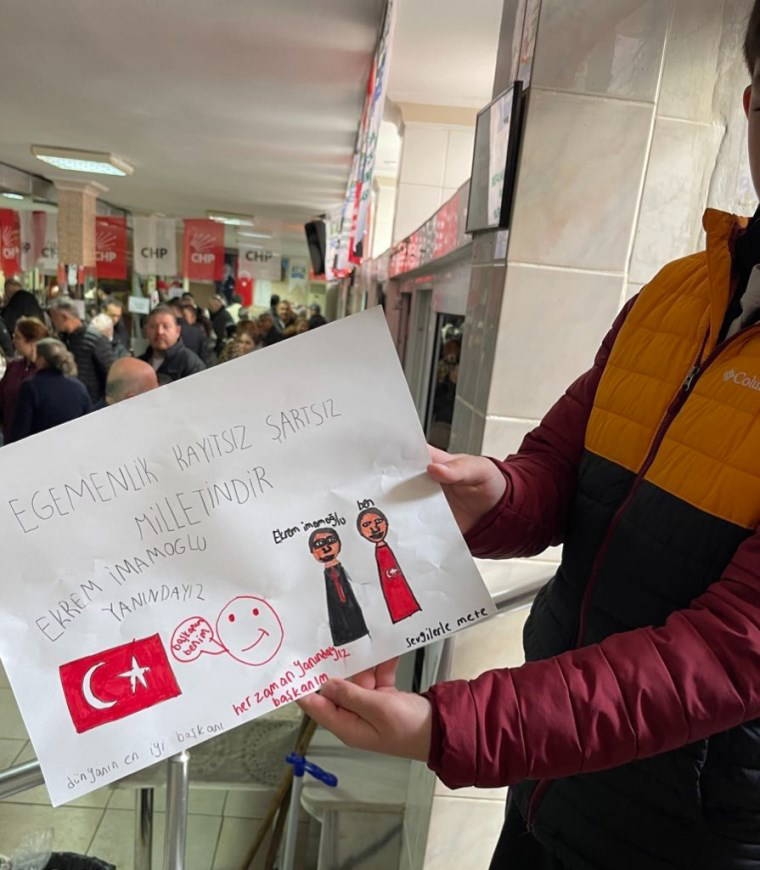 CHP
CHP
CHP
CHP
CHP
Colu
EGEMENLİK KAYITSIZ ŞARTSIZ
MİLLETİNDİR
EKREM İMAMOGLU
YANINDAYIZ
Ekrem imamoğlu
ben
başkanım
benim
sevgilerle mete
her zaman yanındayız
başkanım
dünyanın en iyi başkanı